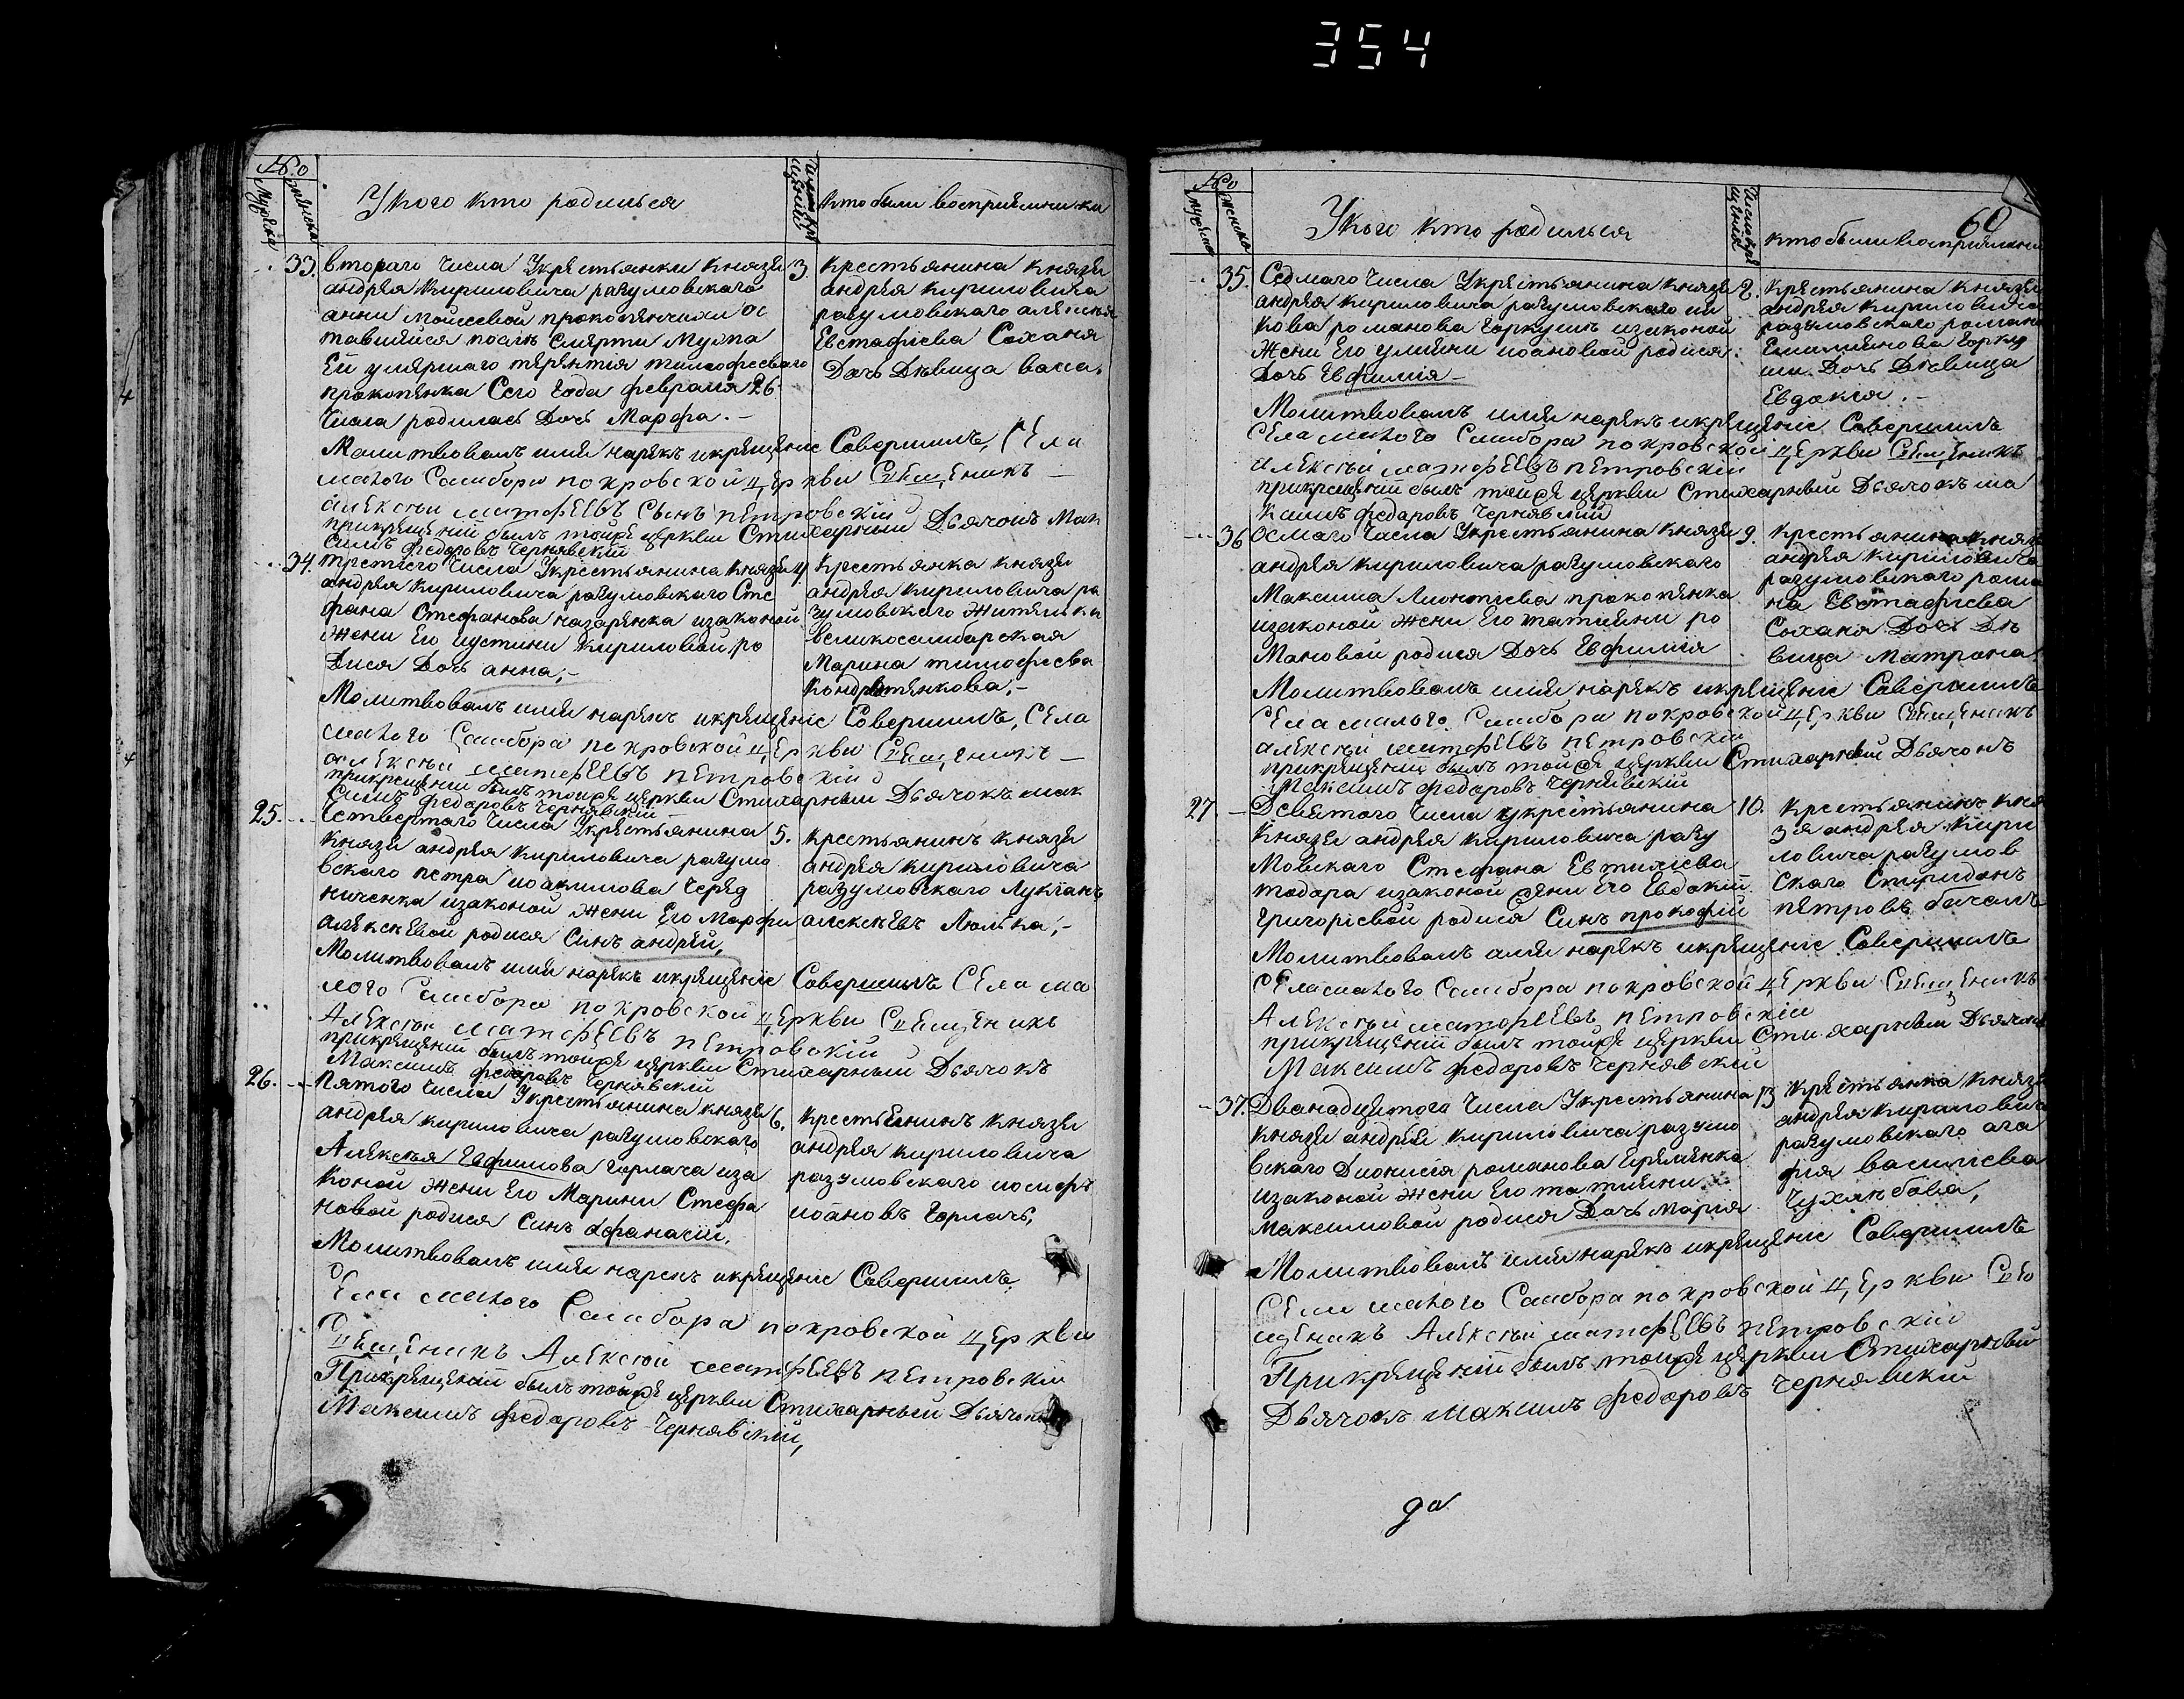 354
№о
Мужеска
женска
У кого кто родилься
Число кре
щенія
кто были восприемники
33. втораго Числа Укрестьянки Князя
андрея Кириловича разумовскаго
анни Мойсеевой прокопенчихи ос
тавшейся после Смерти Мужа
Ей умершаго терентія тимофеева
прокопенка Сего Года февраля 26
Числа родилась Дочь Марфа. –
3. Крестьянина Князя
андрея Кириловича
разумовскаго алексея
Евстафіева Соханя
Дочь Девица васа.
Молитвовалъ имя нарекъ икрещеніе Совершилъ, Села
малого Самбора покровской Церкви Священикъ
Алексей матфеевъ Сынъ петровскій
прикрещеніи былъ тойже церкви Стихарный Дьячокъ Мак
симъ федоровъ Чернявскій
34. третего Числа Укрестьянина Князя
андрея Кириловича разумовскаго Сте
фана Стефанова назаренка изаконой
Жени Его Иустини Кириловой ро
Дися Дочь анна, –
4. Крестьянка Князя
андрея Кириловича ра
зумовскаго Жителька
великосамбарская
Марина тимофеева
Кондратенкова, –
Молитвовалъ имя нарекъ икрещеніе Совершилъ, Села
малого Самбора покровской Церкви Священикъ
алексей матфеевъ петровскій
прикрещеніи былъ тойже церкви Стихарный Дьячокъ мак
симъ федоровъ Чернявскій
25. Четвертаго Числа Укрестьянина
Князя андрея Кириловича разумо
вскаго петра иоакимова Черед
ниченка изаконой Жени Его Марфи
алексеевой родися Синъ андрей,
5. Крестьянинъ Князя
андрея Кириловича
разумовскаго Лукианъ
алексеевъ Люлька, –
Молитвовалъ имя нарекъ икрещеніе Совершилъ Села ма
лого Самбора покровской Церкви Священикъ
Алексей матфеевъ петровскій
прикрещеніи былъ тойже церкви Стихарный Дьячокъ
Максимъ федоровъ Чернявскій
26. Пятого Числа Укрестьянина Князя
андрея Кириловича разумовскаго
Алексея Евфимова Горлача иза
коной Жени Его Марини Стефа
новой родися Синъ афанасій.
6. Крестьенинъ Князя
андрея Кириловича
разумовскаго иосифъ
иоановъ Горлачъ,
Молитвовалъ имя нарекъ икрещеніе Совершилъ,
Села малого Самбора покровской Церкви
Священикъ Алексей матфеевъ петровскій
Прикрещеніи былъ тойже церкви Стихарный Дьячокъ
Максимъ федоровъ Чернявскій,
60
№о
мужеска
женска
У кого кто родилься
Число кре
щенія
кто были восприемни
35. Седмаго Числа Укрестьянина Князя
андрея Кириловича разумовскаго
кова романова Горкуши изаконой
Жени Его улияни иоановой родися
Дочь Евфимія –
Крестьянина Князя
андрея Кириловича
разумовскаго романа
Емилиянова Горку
ши Дочь Девица
Евдокія. –
Молитвовалъ имя нарекъ икрещеніе Совершилъ
Села малого Самбора покровской Церкви Священикъ
алексей матфеевъ петровскій
прикрещеніи былъ тойже церкви Стихарный Дьячокъ ма
ксимъ федоровъ Чернявский
36 Осмаго Числа Укрестьянина Князя
андрея Кириловича разумовскаго
Максима Лионтіева прокопенка
изаконой Жени Его татияни ро
мановой родися Дочь Евфимія
9. Крестьянина Князя
андрея Кириловича
разумовскаго рома
на Евстафіева
Соханя Дочь Де
вица Матрона.
Молитвовалъ имя нарекъ икрещеніе Совершилъ
Села малого Самбора покровской Церкви Священикъ
алексей матфеевъ петровскій
прикрещеніи былъ тойже церкви Стихарный Дьячокъ
Максимъ федоровъ Чернявскій
27. Девятого Числа укрестьянина
Князя андрея Кириловича разу
мовскаго Стефана Евтихіева
тодара изаконой Жени Его Евдокіи
Григоріевой родися Синъ прокофій
10. Крестьянинъ Кня
зя андрея Кири
ловича разумов
скаго Спиридонъ
петровъ
Молитвовалъ имя нарекъ икрещеніе Совершилъ
Села малого Самбора покровской Церкви Священикъ
Алексей матфеевъ петровскій
прикрещеніи былъ тойже церкви Стихарный Дьячокъ
Максимъ федоровъ Чернявскій
37. Дванадцятого Числа Укрестьянина
Князя андрея Кириловича разумо
вскаго Дионисія романова Яременка
изаконой Жени Его татияни
максимовой родися Дочь мария
13 Крестьянка Князя
андрея Кириловича
разумовскаго ага
фія василіева
Чухлебова,
Молитвовалъ имя нарекъ икрещеніе Совершилъ
Села малого Самбора покровской Церкви Свя
щеникъ Алексей матфеевъ петровскій
Прикрещеніи былъ тойже церкви Стихарный
Дьячокъ Максимъ федоровъ Чернявский